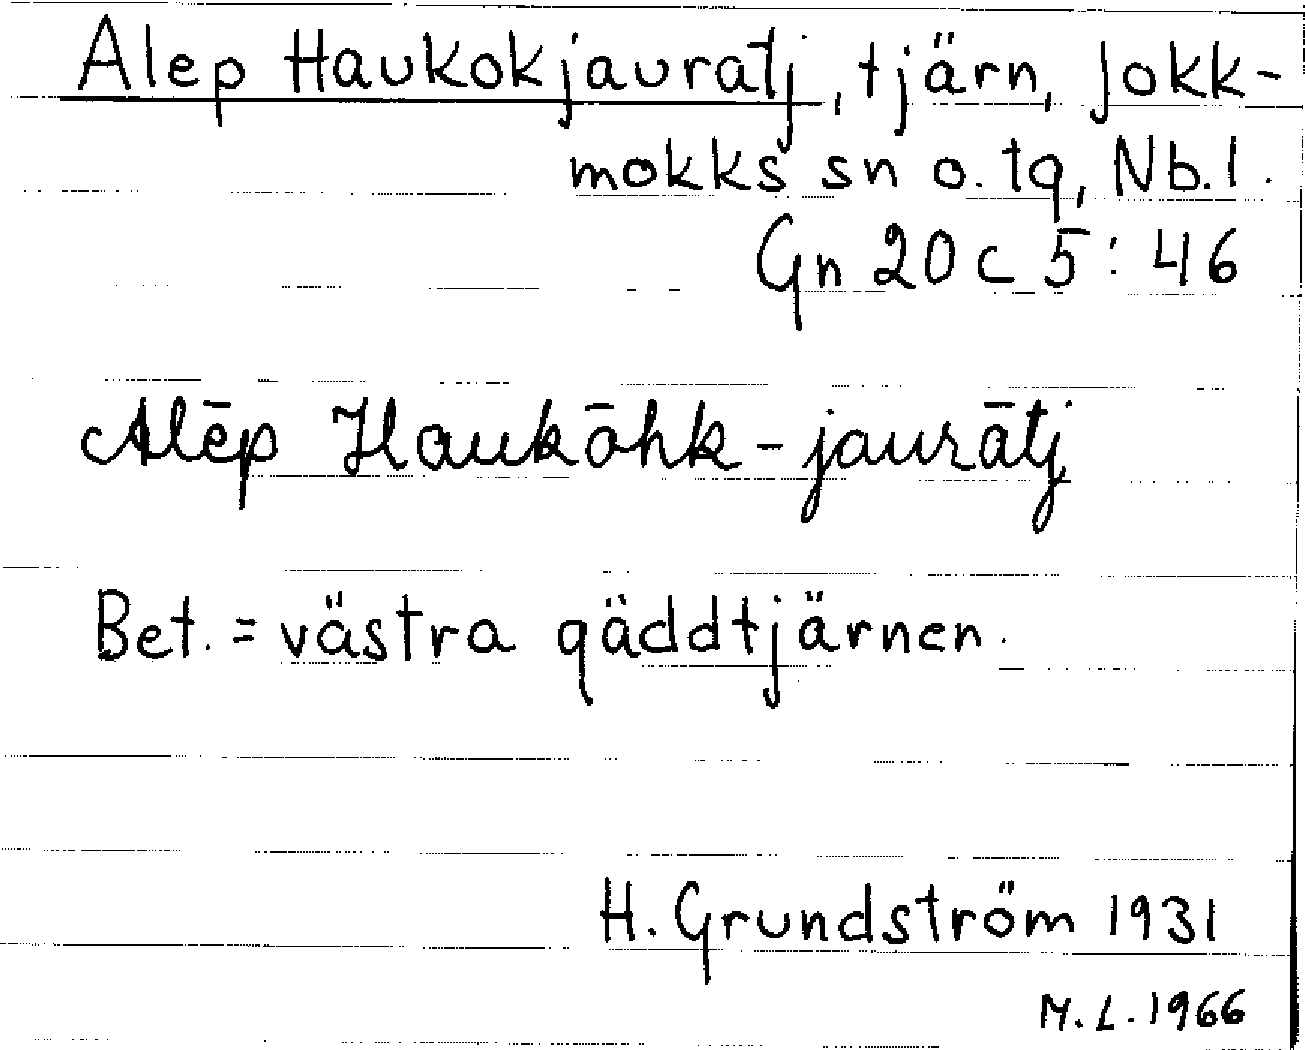 Alep Haukokjauratj, tjärn, Jokk-
mokks sn o. tg, Nb. l.
Gn 20 c 5: 46
Alēp Haukōhk-jaurātj
Bet. = västra gäddtjärnen.
H. Grundström 1931
M. L. 1966